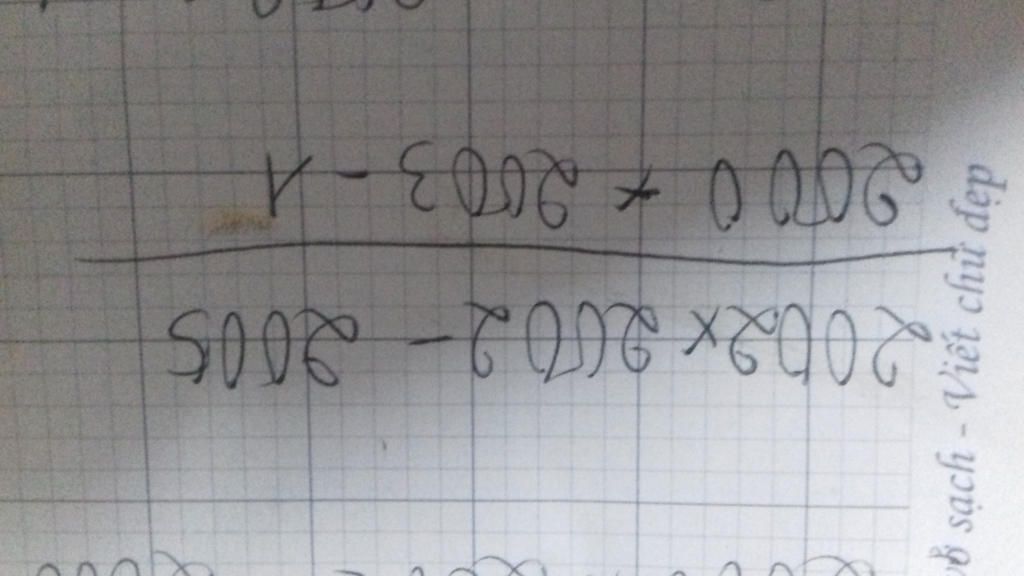 2002 x 2002 - 2005
2000 x 2003 - 1
vở sạch - Viết chữ đẹp